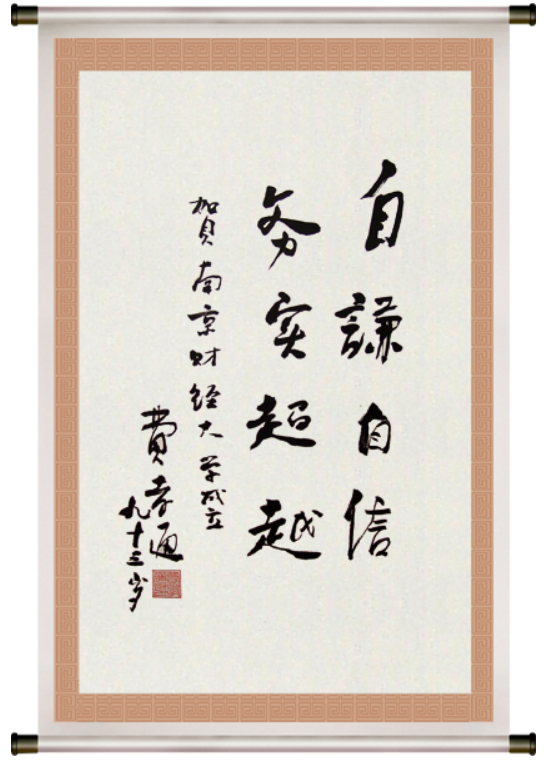 自謙自信
务实超越
贺南京财经大学成立
費孝通
九十三岁